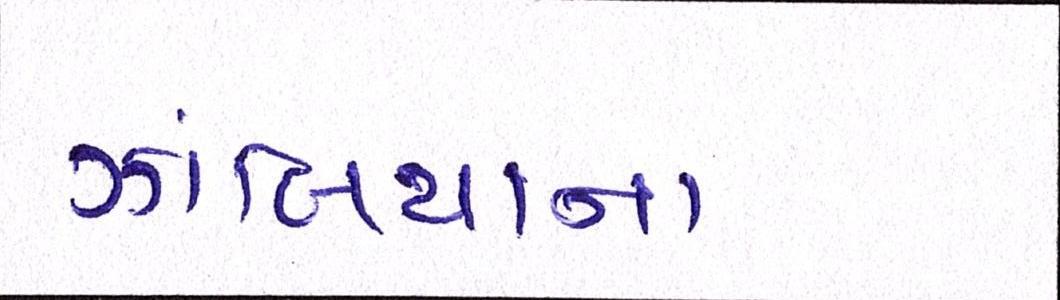 ઝાંબિયાના